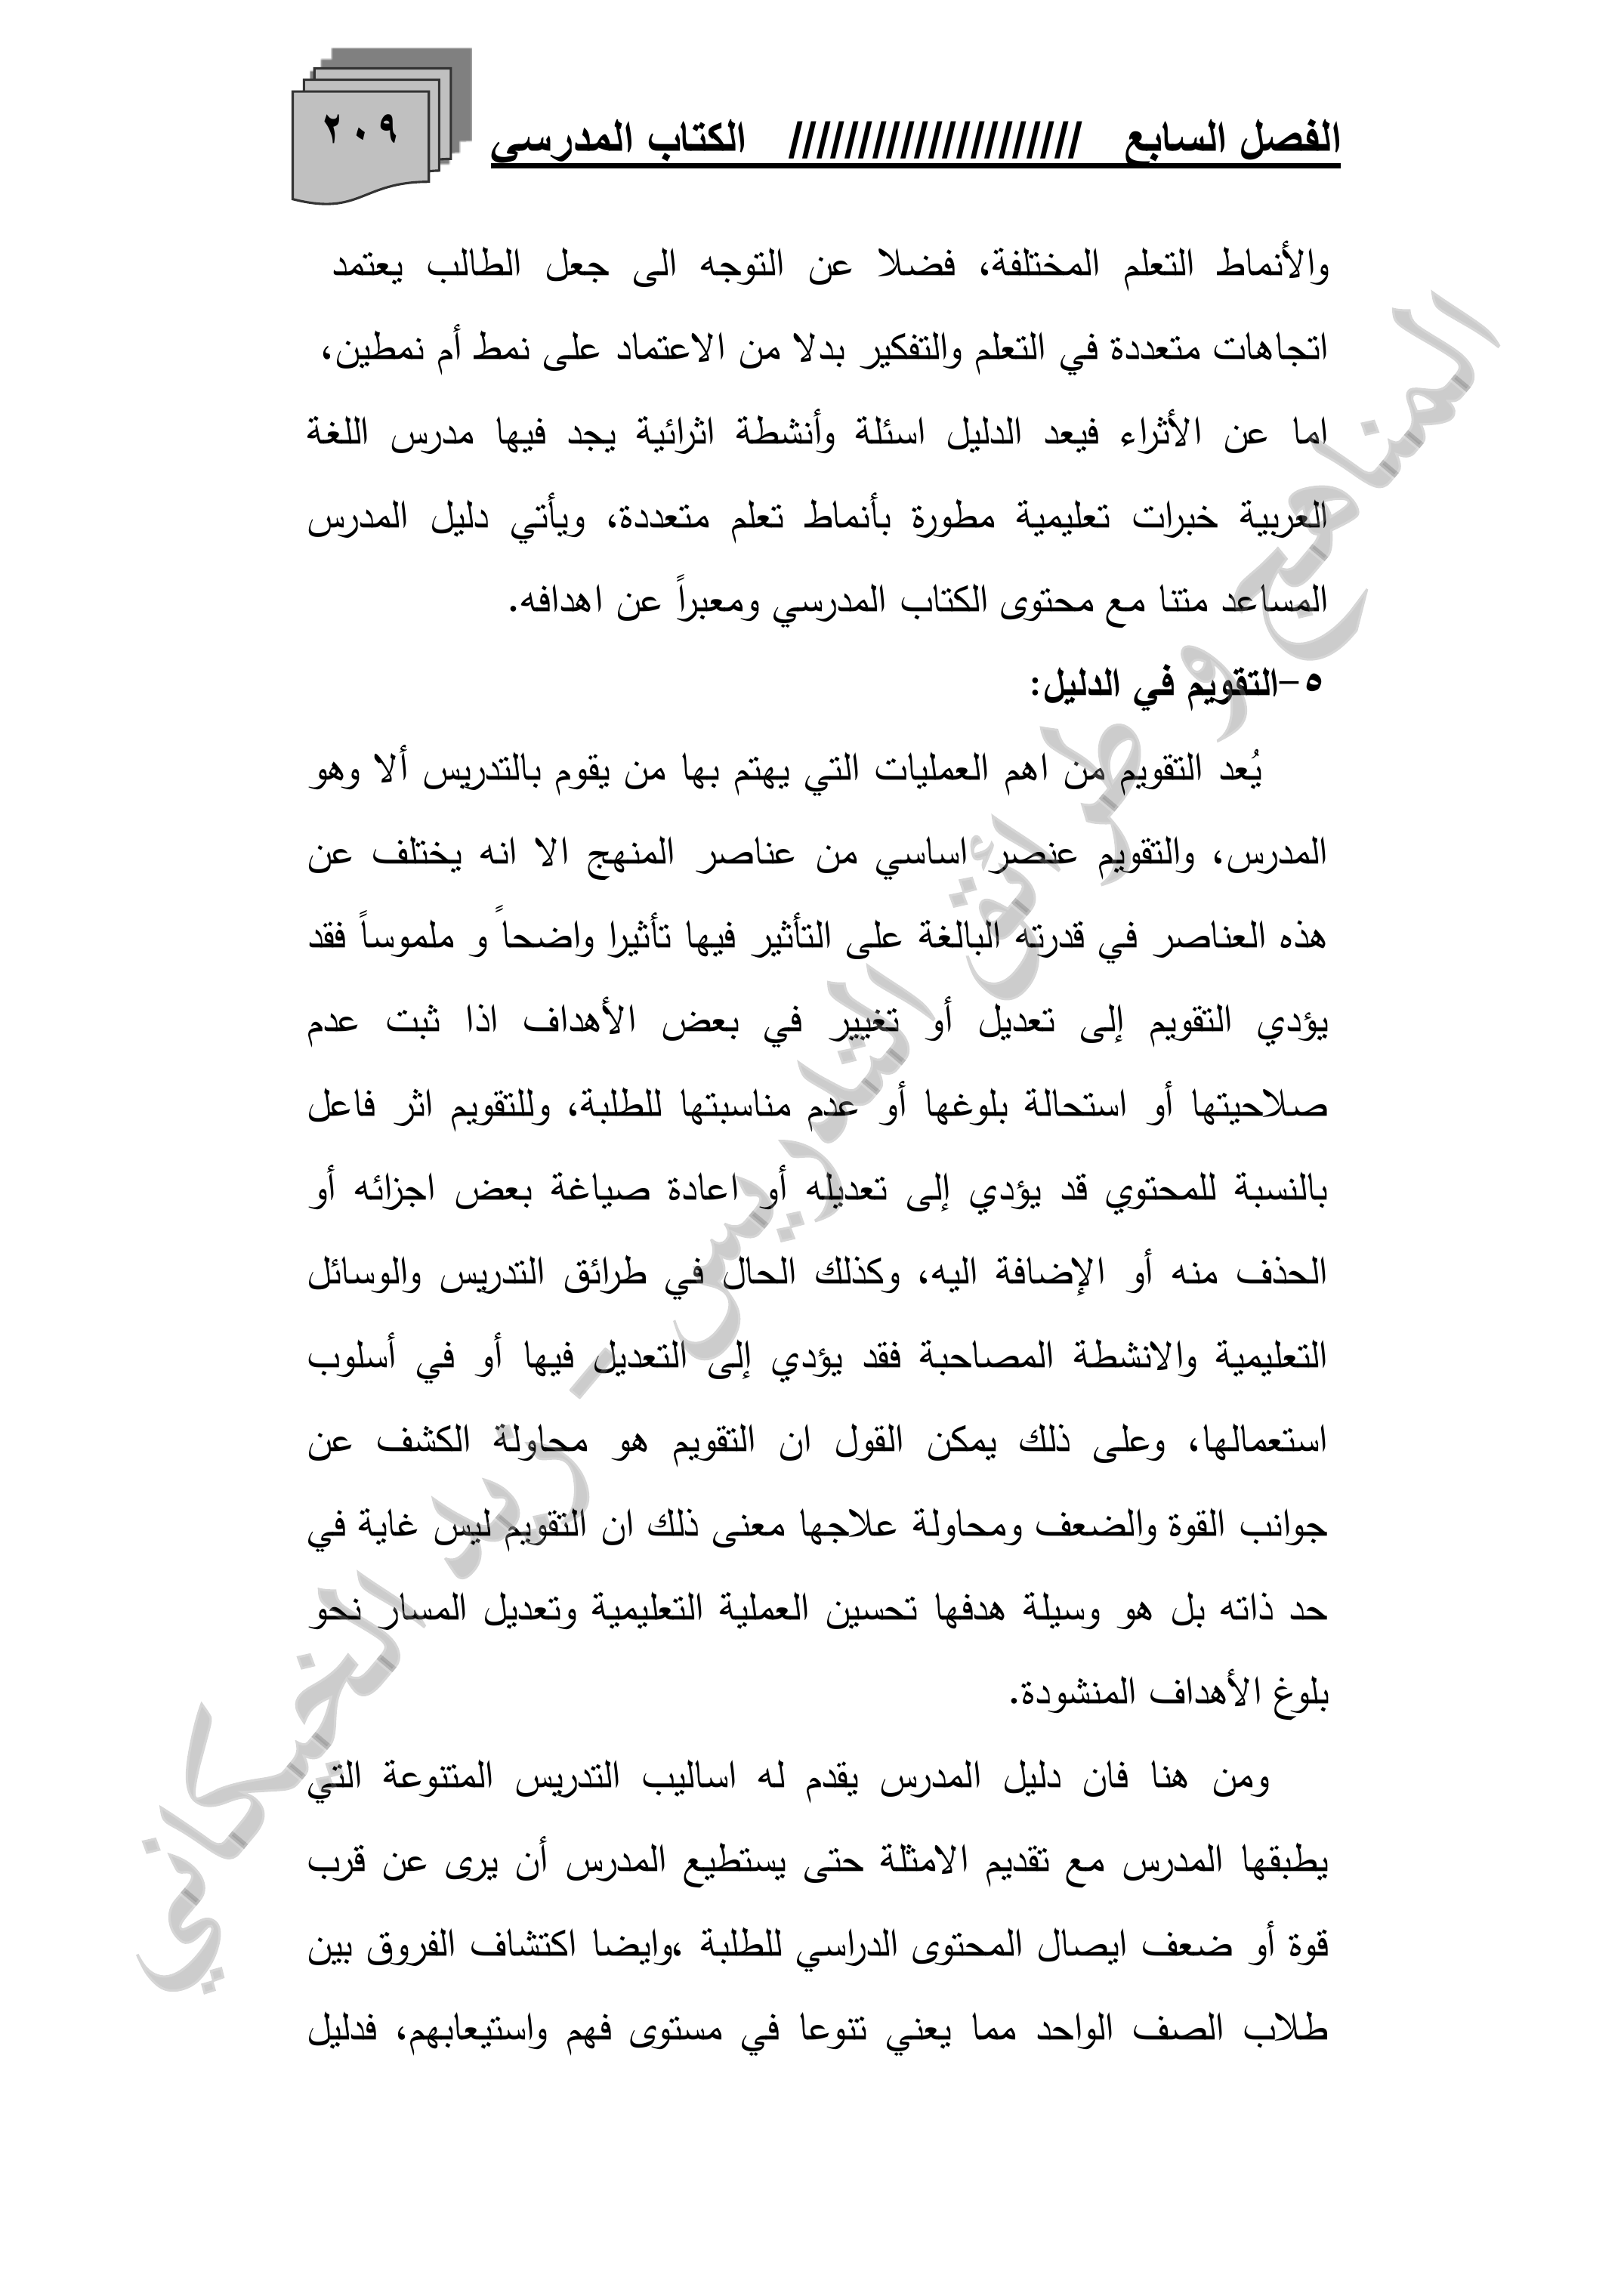 الفصل السابع ///////////////////// الكتاب المدرسي
٢٠٩
والأنماط التعلم المختلفة، فضلا عن التوجه الى جعل الطالب يعتمد
اتجاهات متعددة في التعلم والتفكير بدلا من الاعتماد على نمط أم نمطين،
اما عن الأثراء فيعد الدليل اسئلة وأنشطة اثرائية يجد فيها مدرس اللغة
العربية خبرات تعليمية مطورة بأنماط تعلم متعددة، ويأتي دليل المدرس
المساعد متتا مع محتوى الكتاب المدرسي ومعبراً عن اهدافه.
٥-التقويم في الدليل:
يُعد التقويم من اهم العمليات التي يهتم بها من يقوم بالتدريس ألا وهو
المدرس، والتقويم عنصر اساسي من عناصر المنهج الا انه يختلف عن
هذه العناصر في قدرته البالغة على التأثير فيها تأثيرا واضحاً و ملموساً فقد
يؤدي التقويم إلى تعديل أو تغيير في بعض الأهداف اذا ثبت عدم
صلاحيتها أو استحالة بلوغها أو عدم مناسبتها للطلبة، وللتقويم اثر فاعل
بالنسبة للمحتوي قد يؤدي إلى تعديله أو اعادة صياغة بعض اجزائه أو
الحذف منه أو الإضافة اليه، وكذلك الحال في طرائق التدريس والوسائل
التعليمية والانشطة المصاحبة فقد يؤدي إلى التعديل فيها أو في أسلوب
استعمالها، وعلى ذلك يمكن القول ان التقويم هو محاولة الكشف عن
جوانب القوة والضعف ومحاولة علاجها معنى ذلك ان التقويم ليس غاية في
حد ذاته بل هو وسيلة هدفها تحسين العملية التعليمية وتعديل المسار نحو
بلوغ الأهداف المنشودة.
ومن هنا فان دليل المدرس يقدم له اساليب التدريس المتنوعة التي
يطبقها المدرس مع تقديم الامثلة حتى يستطيع المدرس أن يرى عن قرب
قوة أو ضعف ايصال المحتوى الدراسي للطلبة ،وايضا اكتشاف الفروق بين
طلاب الصف الواحد مما يعني تنوعا في مستوى فهم واستيعابهم، فدليل
المناهج و طرائق التدريس - زيد الخيكاني